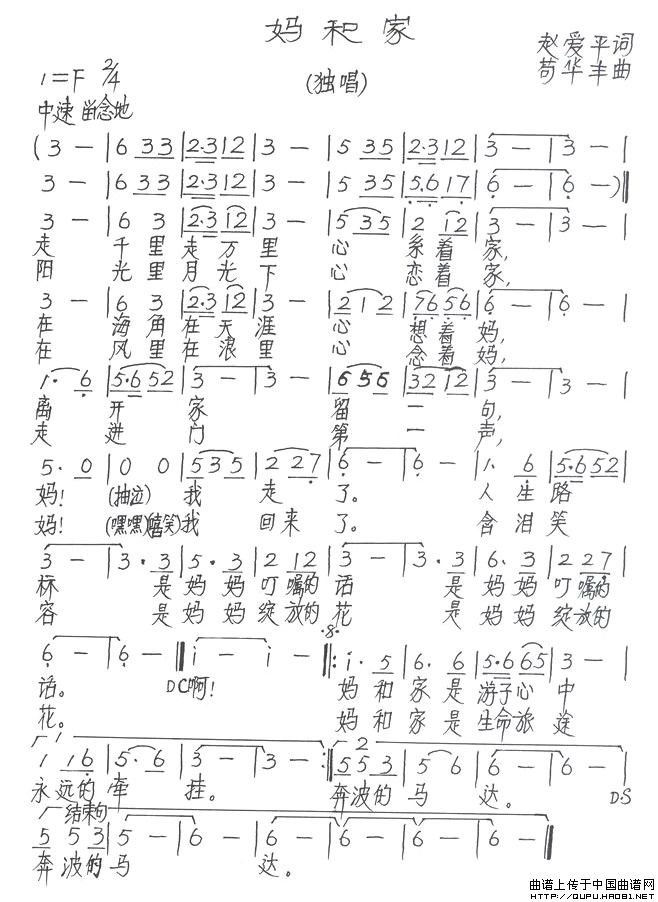 妈和家
赵爱平词
苟华丰曲
(独唱)
1=F 2/4
中速 留念地
(3 - |6 33|2·312|3 - |5 35|2·312|3 - |3 - |
3 - |6 33|2·312|3 - |5 35|5·6 17|6 - |6 -)‖
3 - |6 3|2·312|3 - |535|2 12|3 - |3 - |
走 千里走万里 心 系着家,
阳 光里月光下 心 恋着家,
3 - |6 3|2·312|3 - |212|7656|6 - |6 - |
在 海角在天涯 心 想着妈,
在 风里在浪里 心 念着妈,
1· 6|5·652|3 - |3 - |656|3212|3 - |3 - |
离开家 留一句,
走进门 第一声,
5· 0|0 0|535|2 27|6 - |6 - |1· 6|5·652|
妈! (抽泣) 我走了。 人生路
妈! (嘿嘿)(嘻笑)我回来了。 含泪笑
3 - |3·3|5·3|2 12|3 - |3·3|6·3|2 27|
标 是妈妈叮嘱的话 是妈妈叮嘱的
容 是妈妈绽放的花 是妈妈绽放的
6 - |6 - ‖i - |i - ‖: i·5|6·6|5·665|3 - |
话。 DC啊! 妈和家是游子心中
花。 妈和家是生命旅途
1
1 16|5·6|3 - |3 - :‖553|5 6|6 - |6 - |
2
永远的牵挂。 奔波的马达。 D·S
结束句
5 53|5 - |6 - |6 - |6 - |6 - |6 - ‖
奔波的马达。
曲谱上传于中国曲谱网
HTTP://QUPU.HAO81.NET